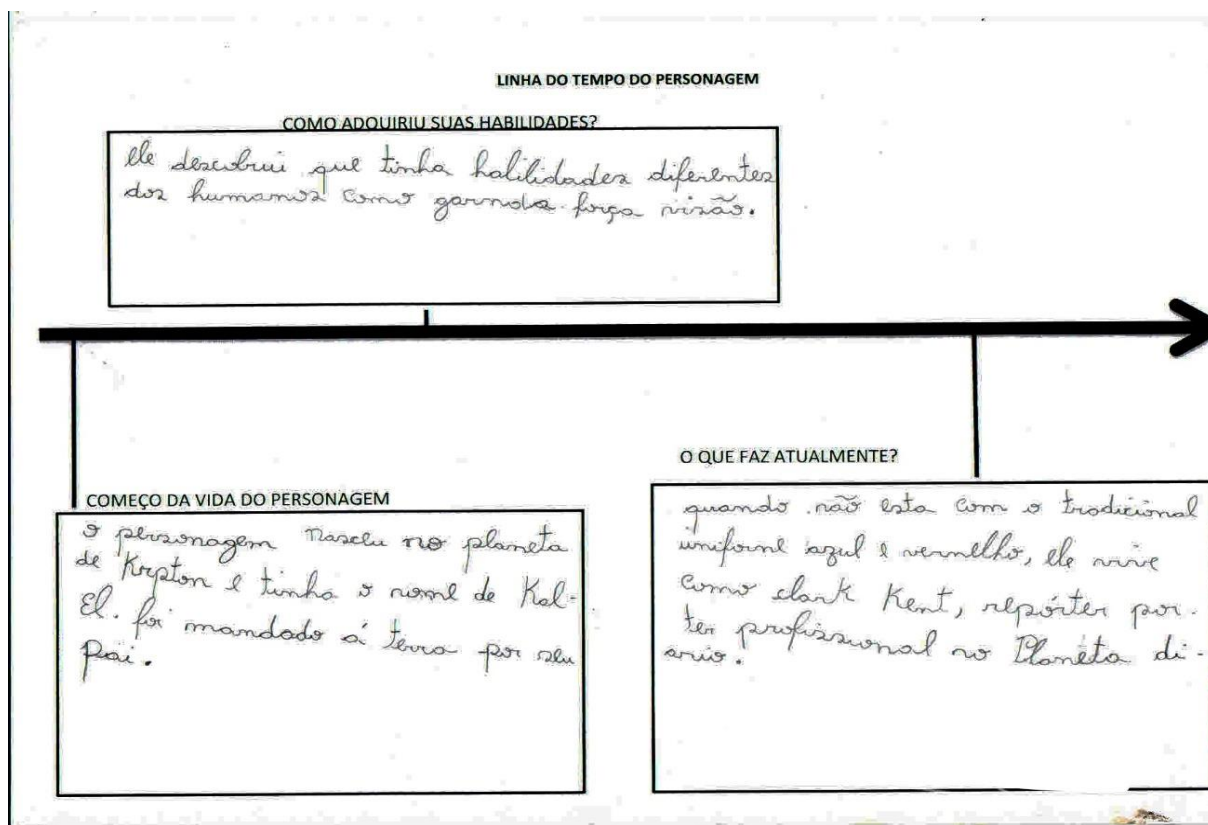 LINHA DO TEMPO DO PERSONAGEM
COMO ADQUIRIU SUAS HABILIDADES?
ele descobrui que tinha habilidades diferentes
dos humanos como garnda força visão.
COMEÇO DA VIDA DO PERSONAGEM
o personagem nasceu no planeta
de Krpton e tinha o nome de Kal-
El. foi mandado á terra por seu
Pai.
O QUE FAZ ATUALMENTE?
quando não esta com o tradicional
uniforme azul e vermelho, ele vive
como clark Kent, repórter por-
ter profissional no Planeta di-
ario.